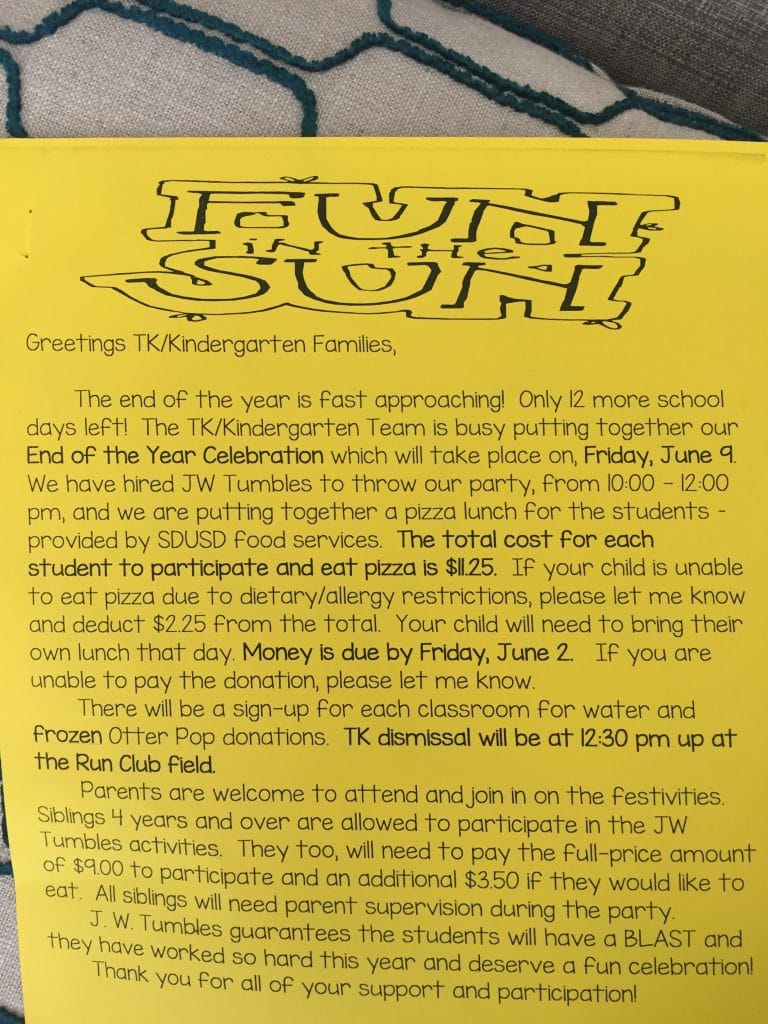 FUN
IN THE
SUN
Greetings TK/Kindergarten Families,
The end of the year is fast approaching! Only 12 more school
days left! The TK/Kindergarten Team is busy putting together our
End of the Year Celebration which will take place on, Friday, June 9.
We have hired JW Tumbles to throw our party, from 10:00 - 12:00
pm, and we are putting together a pizza lunch for the students -
provided by SDUSD food services. The total cost for each
student to participate and eat pizza is $11.25. If your child is unable
to eat pizza due to dietary/allergy restrictions, please let me know
and deduct $2.25 from the total. Your child will need to bring their
own lunch that day. Money is due by Friday, June 2. If you are
unable to pay the donation, please let me know.
There will be a sign-up for each classroom for water and
frozen Otter Pop donations. TK dismissal will be at 12:30 pm up at
the Run Club field.
Parents are welcome to attend and join in on the festivities.
Siblings 4 years and over are allowed to participate in the JW
Tumbles activities. They too, will need to pay the full-price amount
of $9.00 to participate and an additional $3.50 if they would like to
eat. All siblings will need parent supervision during the party.
J. W. Tumbles guarantees the students will have a BLAST and
they have worked so hard this year and deserve a fun celebration!
Thank you for all of your support and participation!